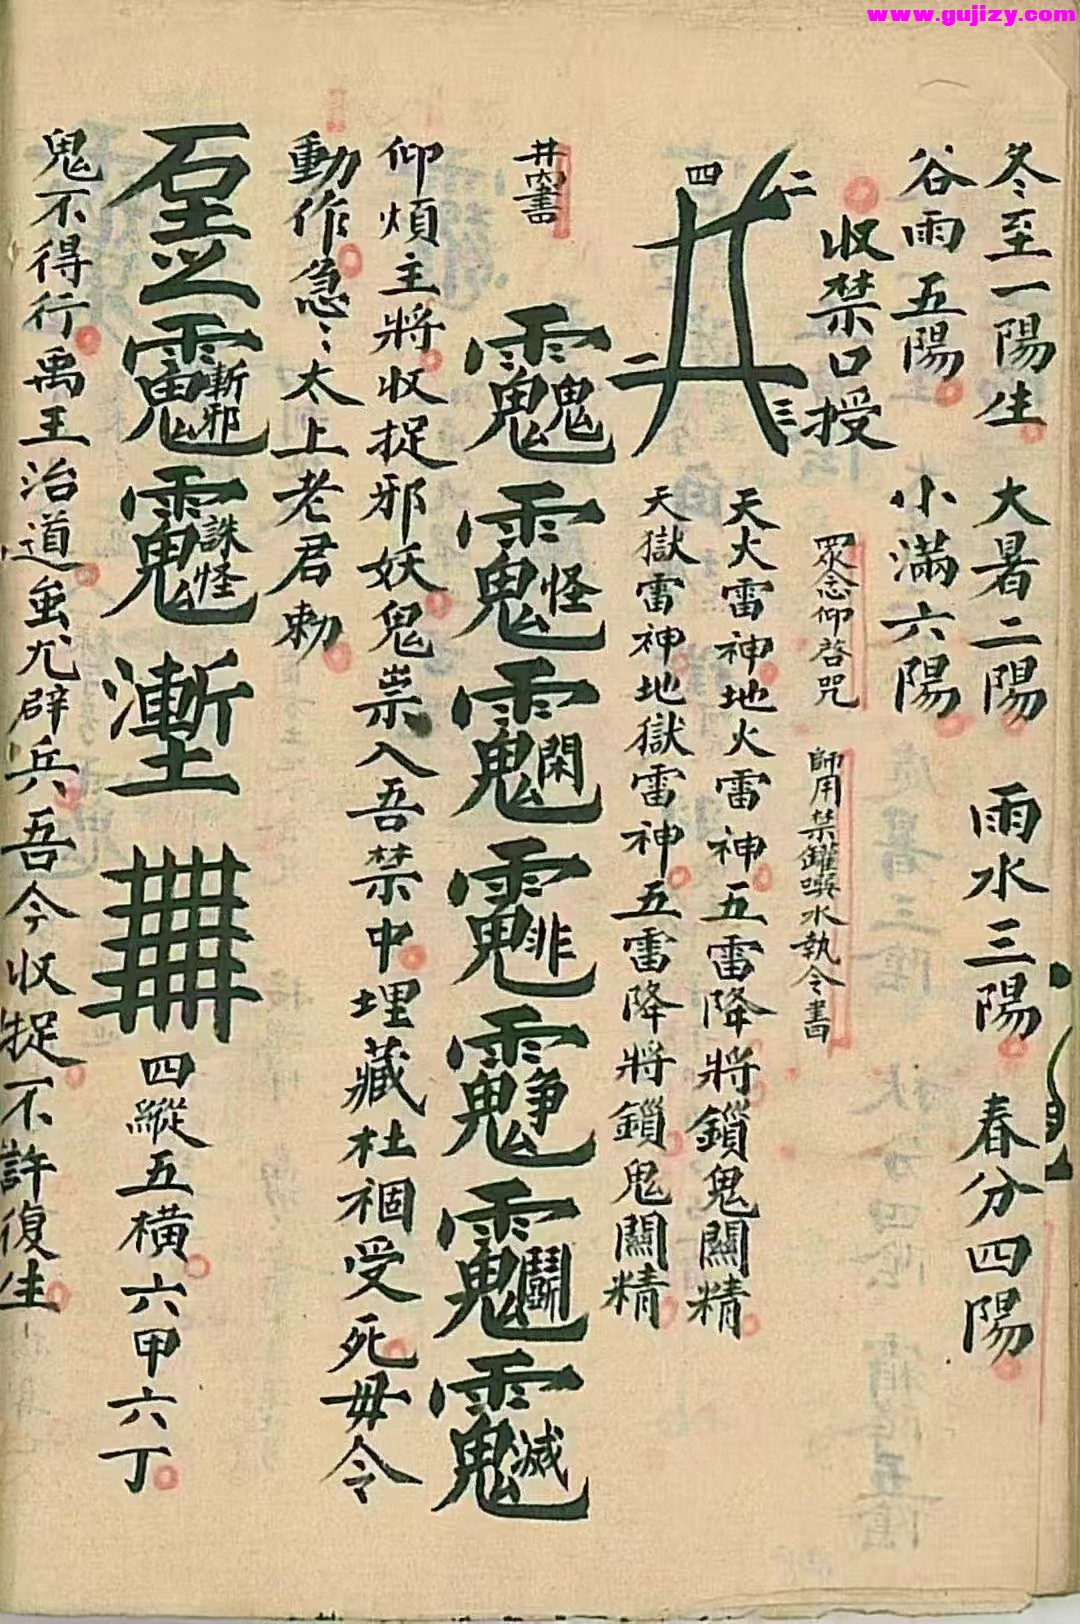 www.gujizy.com
冬至一陽生 大暑二陽 雨水三陽 春分四陽
谷雨五陽 小滿六陽
收禁口授
眾念仰啓咒 師用禁罐噀水執令書
二
四
一
三
天火雷神地火雷神五雷降將鎖鬼關精
天獄雷神地獄雷神五雷降將鎖鬼關精
井內書
鬼
怪
閑
非
争
鬭
滅
仰煩主將收捉邪妖鬼祟入吾禁中埋藏杜祻受死毋令
動作急〻太上老君勅
斬邪
誅怪
四縱五橫六甲六丁
鬼不得行禹王治道蚩尤辟兵吾今收捉不許復生